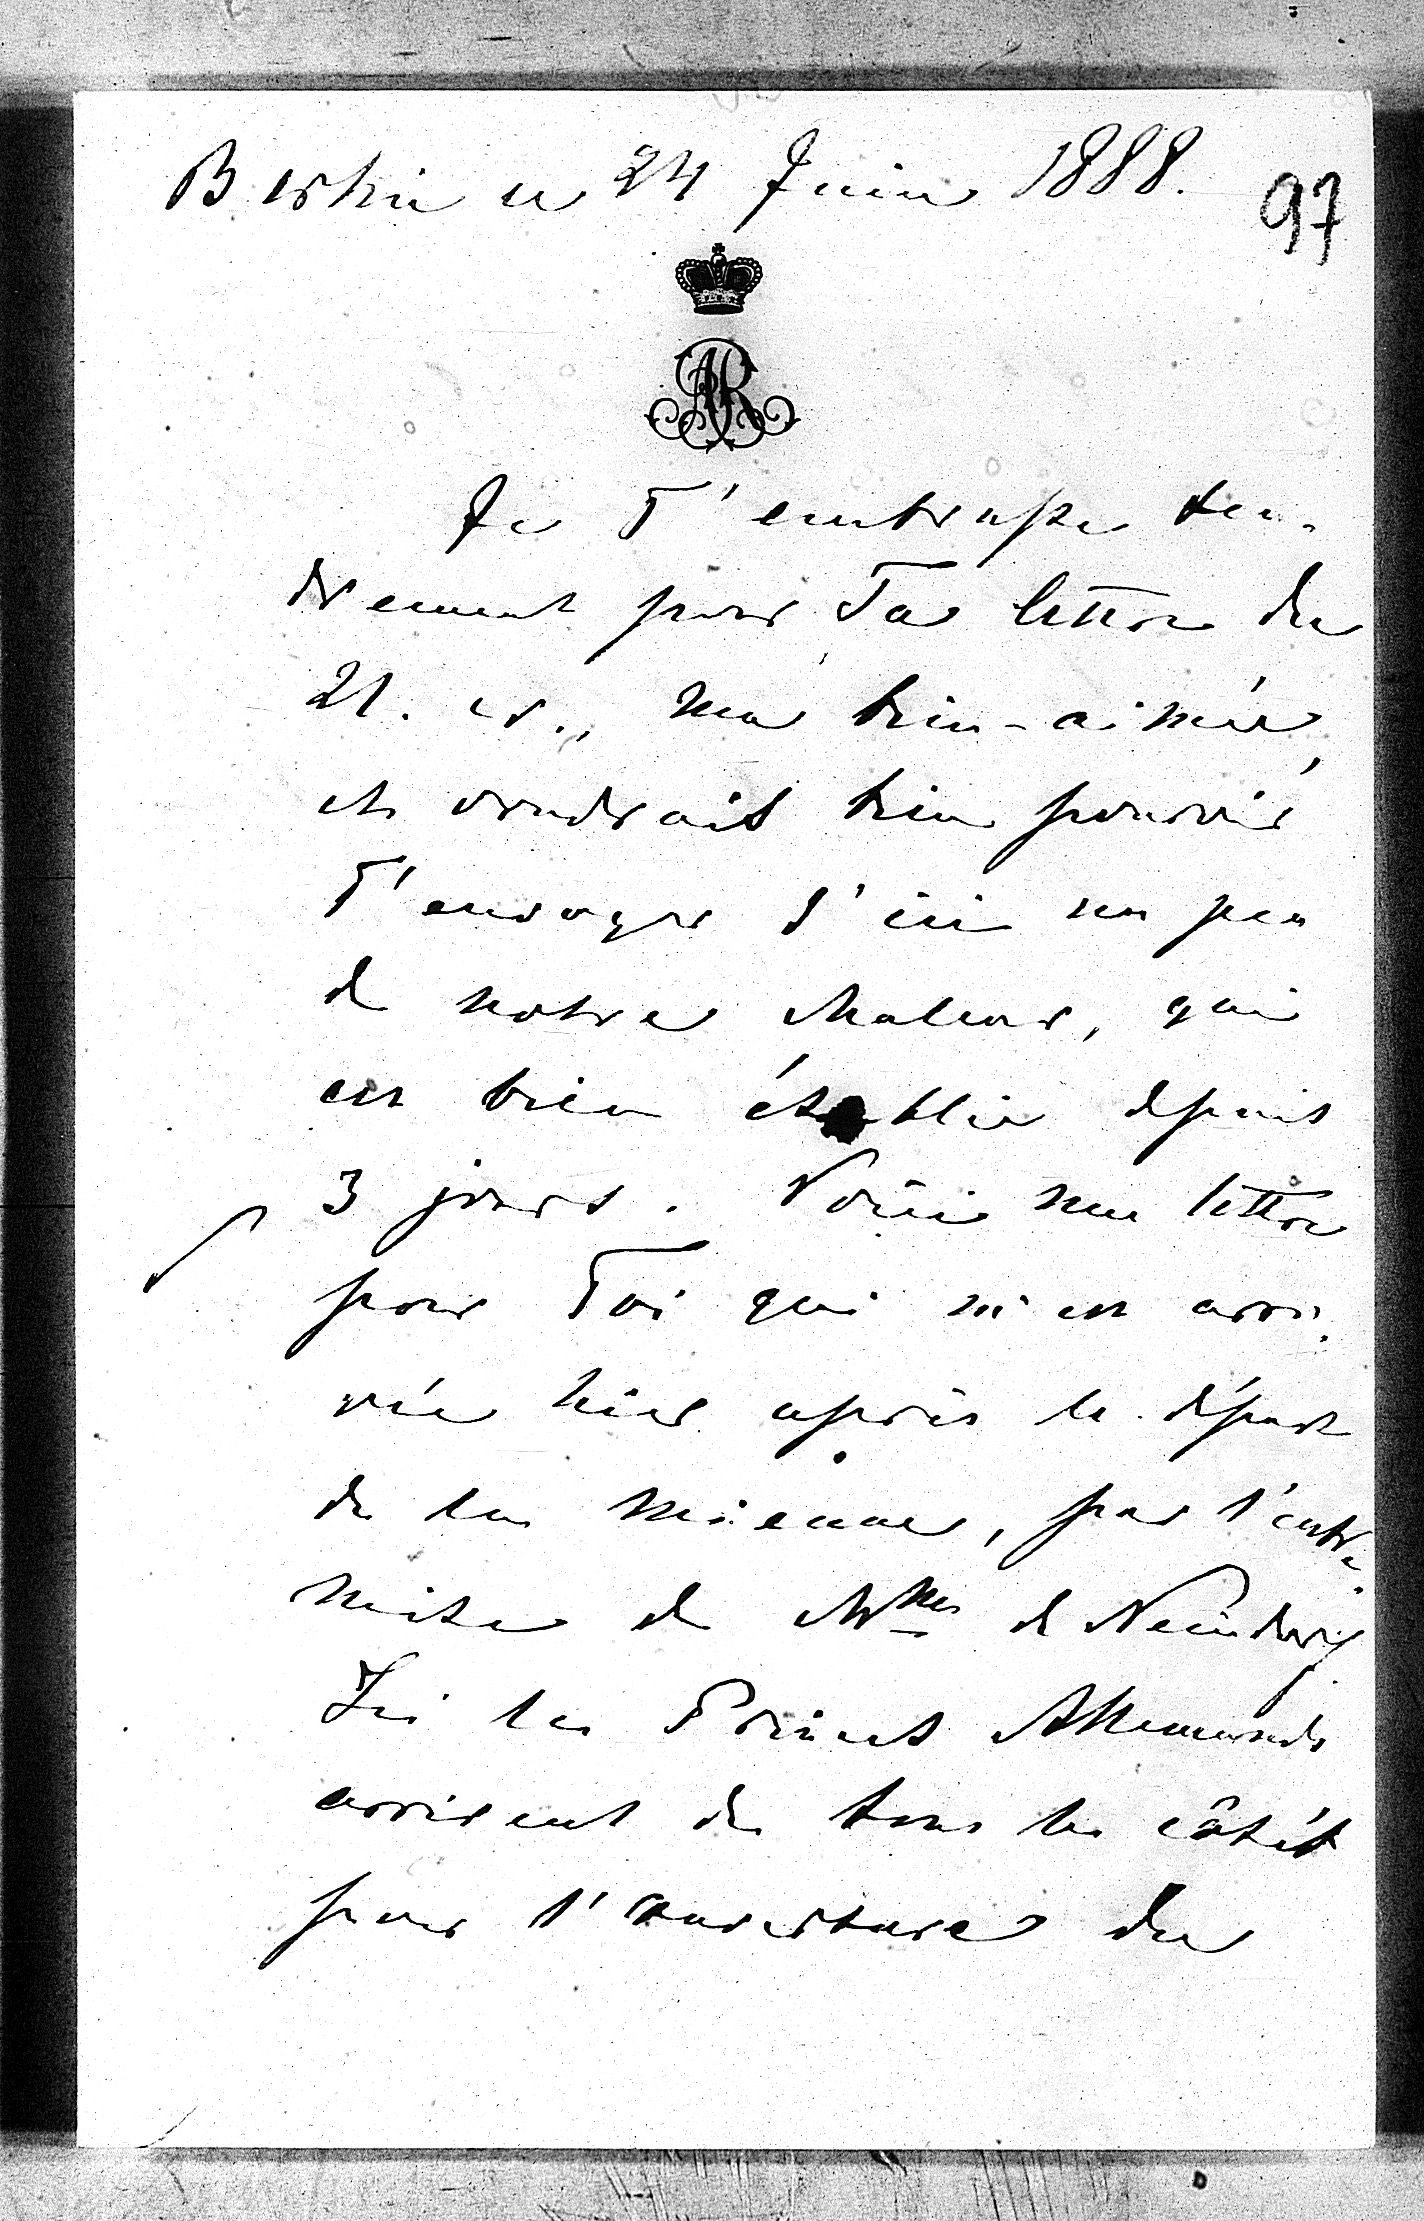 Berlin ce 24 Juin 1888.
97
AR
Je T'embrasse ten-
drement pour Ta lettre du
21. cr., ma bien-aimée,
et voudrait bien pouvoir
T'envoyer d'ici un peu
de notre chaleur, qui
est bien établie depuis
3 jours. Voici une lettre
pour Toi qui m'est arri-
vée hier après le départ
de la mienne, par l'entre-
mise de Mme de
Ici les Princes Allemands
arrivent de tous les côtés
pour l'ouverture du